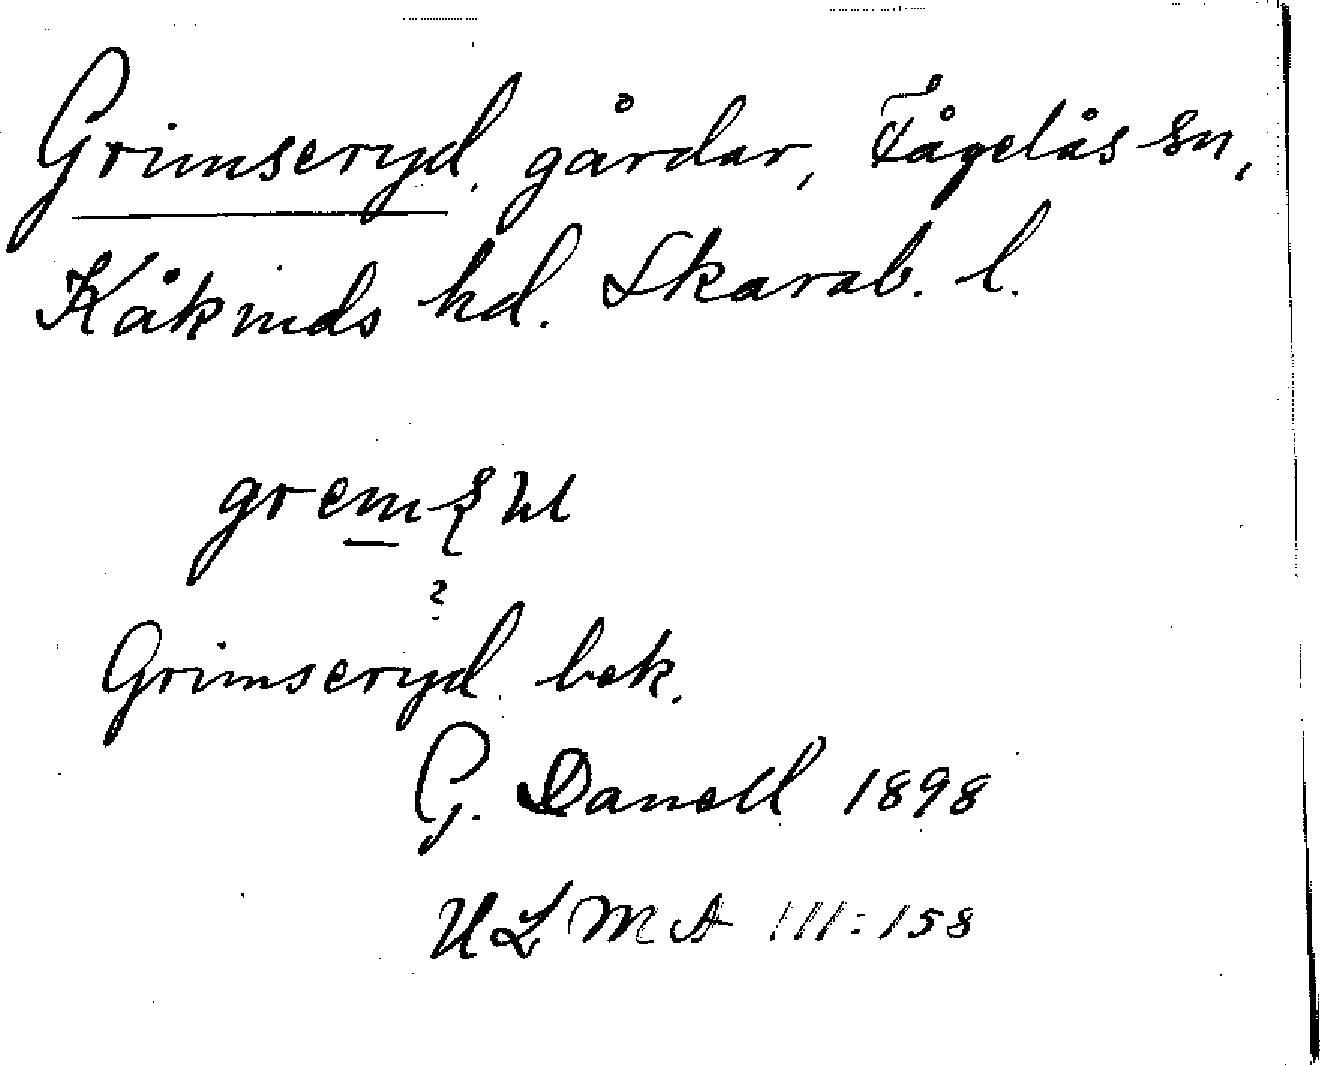 Grimseryd, gårdar, Fågelås sn,
Kåkinds hd. Skarab. l.
?
Grimseryd bek.
G. Danell 1898
ULMA 111:158